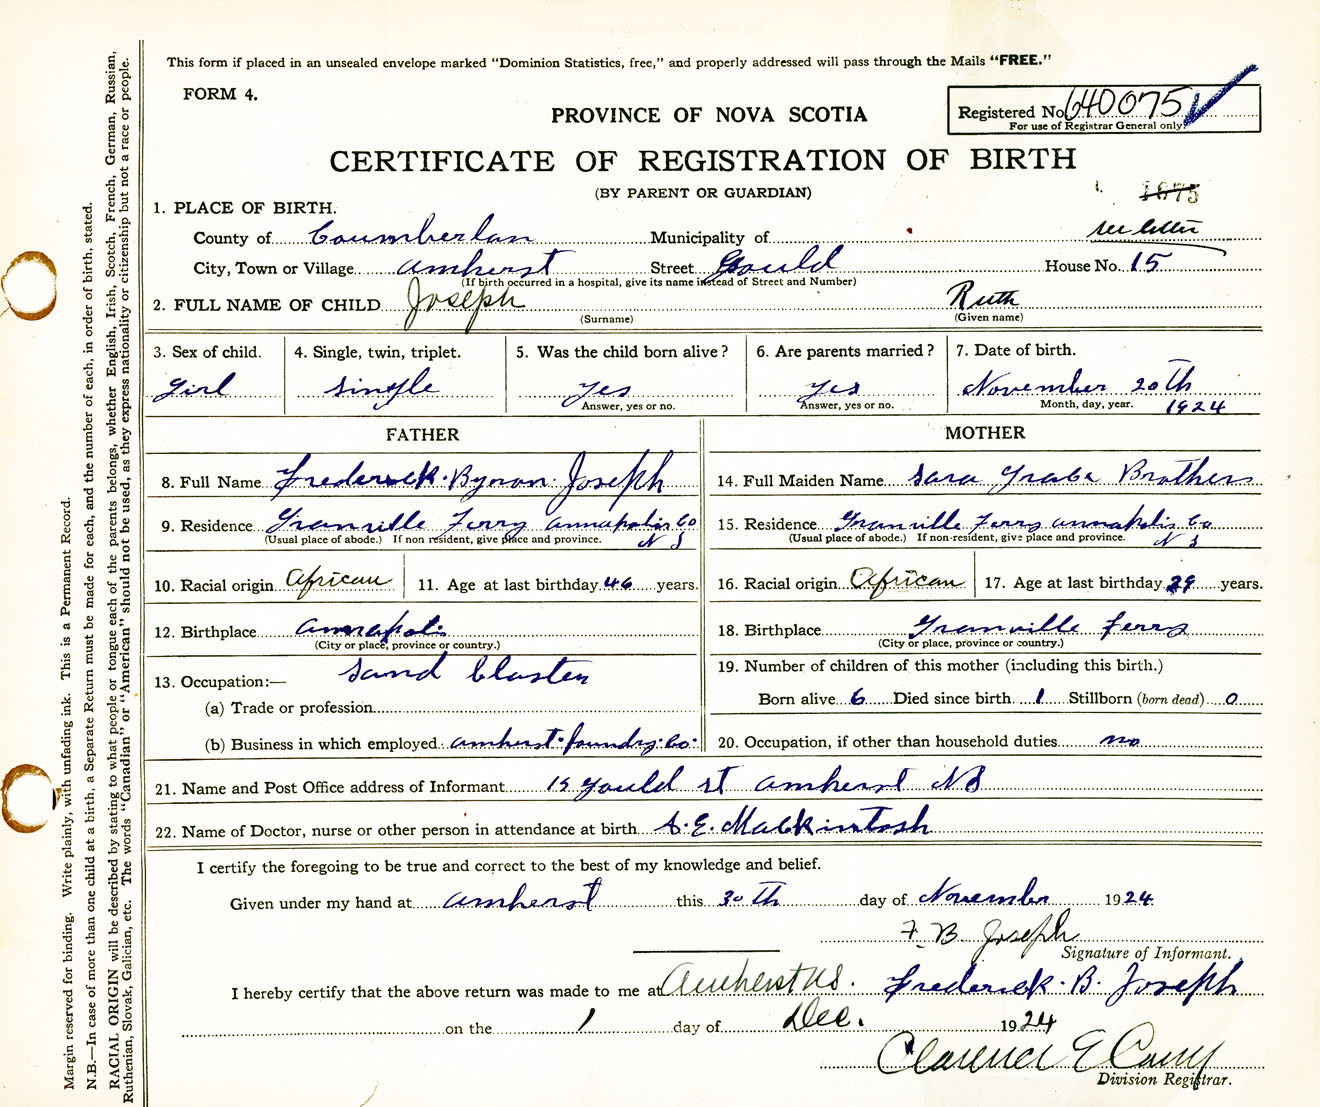 This form if placed in an unsealed envelope marked "Dominion Statistics, free," and properly addressed will pass through the Mails "FREE."
FORM 4.
PROVINCE OF NOVA SCOTIA
Registered No. 640075
For use of Registrar General only.
CERTIFICATE OF REGISTRATION OF BIRTH
(BY PARENT OR GUARDIAN)
1675
see letter
1. PLACE OF BIRTH.
County of Coumberlan Municipality of
City, Town or Village amherst Street Gould House No. 15
(If birth occurred in a hospital, give its name instead of Street and Number)
2. FULL NAME OF CHILD Joseph Ruth
(Surname) (Given name)
3. Sex of child. 4. Single, twin, triplet. 5. Was the child born alive? 6. Are parents married? 7. Date of birth.
Girl single yes yes November 20th
Answer, yes or no. Answer, yes or no. Month, day, year. 1924
FATHER MOTHER
8. Full Name Frederick Byron Joseph 14. Full Maiden Name Sara Brothers
9. Residence Granville Ferry annapolis Co 15. Residence Granville Ferry annapolis Co
(Usual place of abode.) If non resident, give place and province. N S (Usual place of abode.) If non-resident, give place and province. N S
10. Racial origin African 11. Age at last birthday 46 years. 16. Racial origin African 17. Age at last birthday 29 years.
12. Birthplace annapolis 18. Birthplace Granville ferry
(City or place, province or country.) (City or place, province or country.)
13. Occupation:— sand blaster 19. Number of children of this mother (including this birth.)
(a) Trade or profession Born alive 6 Died since birth 1 Stillborn (born dead) 0
(b) Business in which employed amherst foundry Co. 20. Occupation, if other than household duties no
21. Name and Post Office address of Informant 15 Gould st amherst NS
22. Name of Doctor, nurse or other person in attendance at birth A. E. Mackintosh
I certify the foregoing to be true and correct to the best of my knowledge and belief.
Given under my hand at amherst this 30th day of November 1924
F. B. Joseph
Signature of Informant.
I hereby certify that the above return was made to me at Amherst NS. Frederick B. Joseph
on the 1 day of Dec. 1924
Clarence E Casey
Division Registrar.
Margin reserved for binding. Write plainly, with unfading ink. This is a Permanent Record.
N.B.—In case of more than one child at a birth, a Separate Return must be made for each, and the number of each, in order of birth, stated.
RACIAL ORIGIN will be described by stating to what people or tongue each of the parents belongs, whether English, Irish, Scotch, French, German, Russian,
Ruthenian, Slovak, Galician, etc. The words "Canadian" or "American" should not be used, as they express nationality or citizenship but not a race or people.